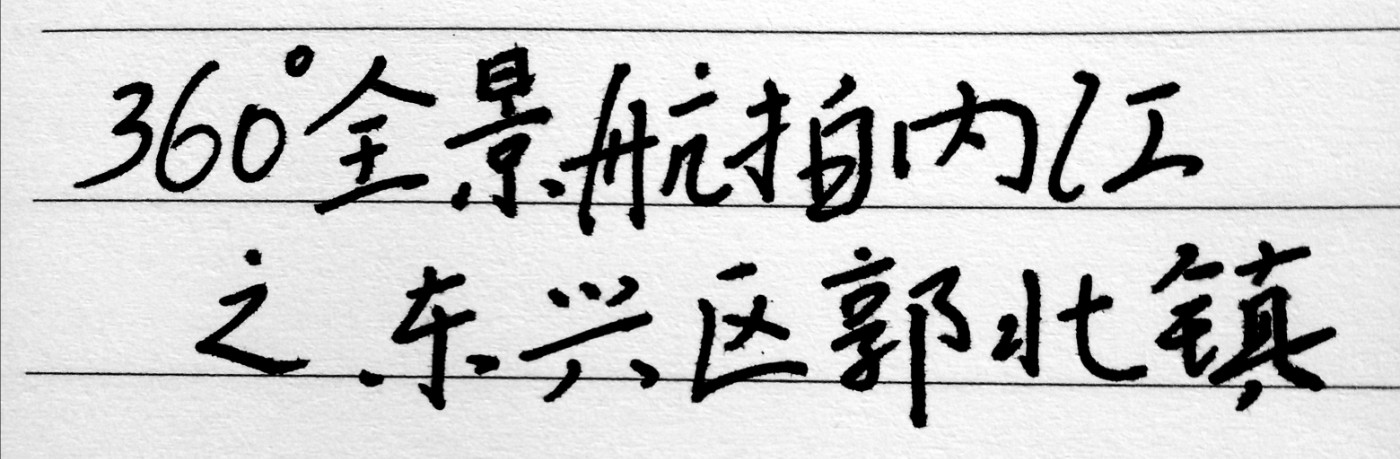 360°全景航拍内江
之东兴区郭北镇